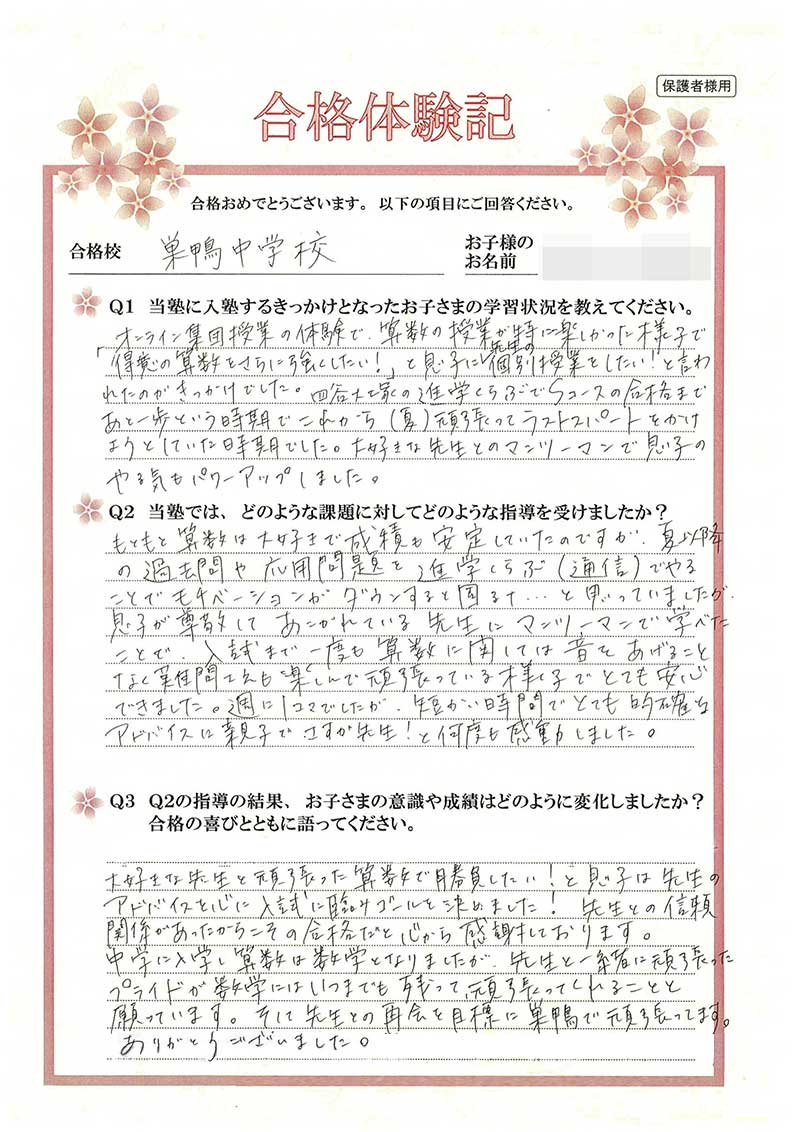 保護者様用
合格体験記
合格おめでとうございます。以下の項目にご回答ください。
合格校 巣鴨中学校
お子様の
お名前
Q1 当塾に入塾するきっかけとなったお子さまの学習状況を教えてください。
オンライン集団授業の体験で、算数の授業が特に楽しかった様子で
「得意の算数をさらに強くしたい!」と息子に「先生の個別授業をしたい!と言わ
れたのがきっかけでした。四谷大塚の進学くらぶでSコースの合格まで
あと一歩という時期でこれから(夏)頑張ってラストスパートをかけ
ようとしていた時期でした。大好きな先生とのマンツーマンで息子の
やる気もパワーアップしました。
Q2 当塾では、どのような課題に対してどのような指導を受けましたか?
もともと算数は大好きで成績も安定していたのですが、夏以降
の過去問や応用問題を進学くらぶ(通信)でやる
ことでモチベーションがダウンすると困るナ…と思っていましたが、
息子が尊敬して あこがれている先生にマンツーマンで学べた
ことで、入試まで一度も算数に関しては音をあげること
なく難問でさえも楽しんで頑張っている様子でとても安心
できました。週に1コマでしたが、短かい時間でとても的確な
アドバイスに親子でさすが先生!と何度も感動しました。
Q3 Q2の指導の結果、お子さまの意識や成績はどのように変化しましたか?
合格の喜びとともに語ってください。
大好きな先生と頑張った算数で勝負したい!と息子は先生の
アドバイスを心に入試に臨みゴールを決めました! 先生との信頼
関係があったからこその合格だと心から感謝しております。
中学に入学し算数は数学となりましたが、先生と一緒に頑張った
プライドが数学にはいつまでも残って頑張ってくれることと
願っています。そして先生との再会を目標に巣鴨で頑張ってます。
ありがとうございました。